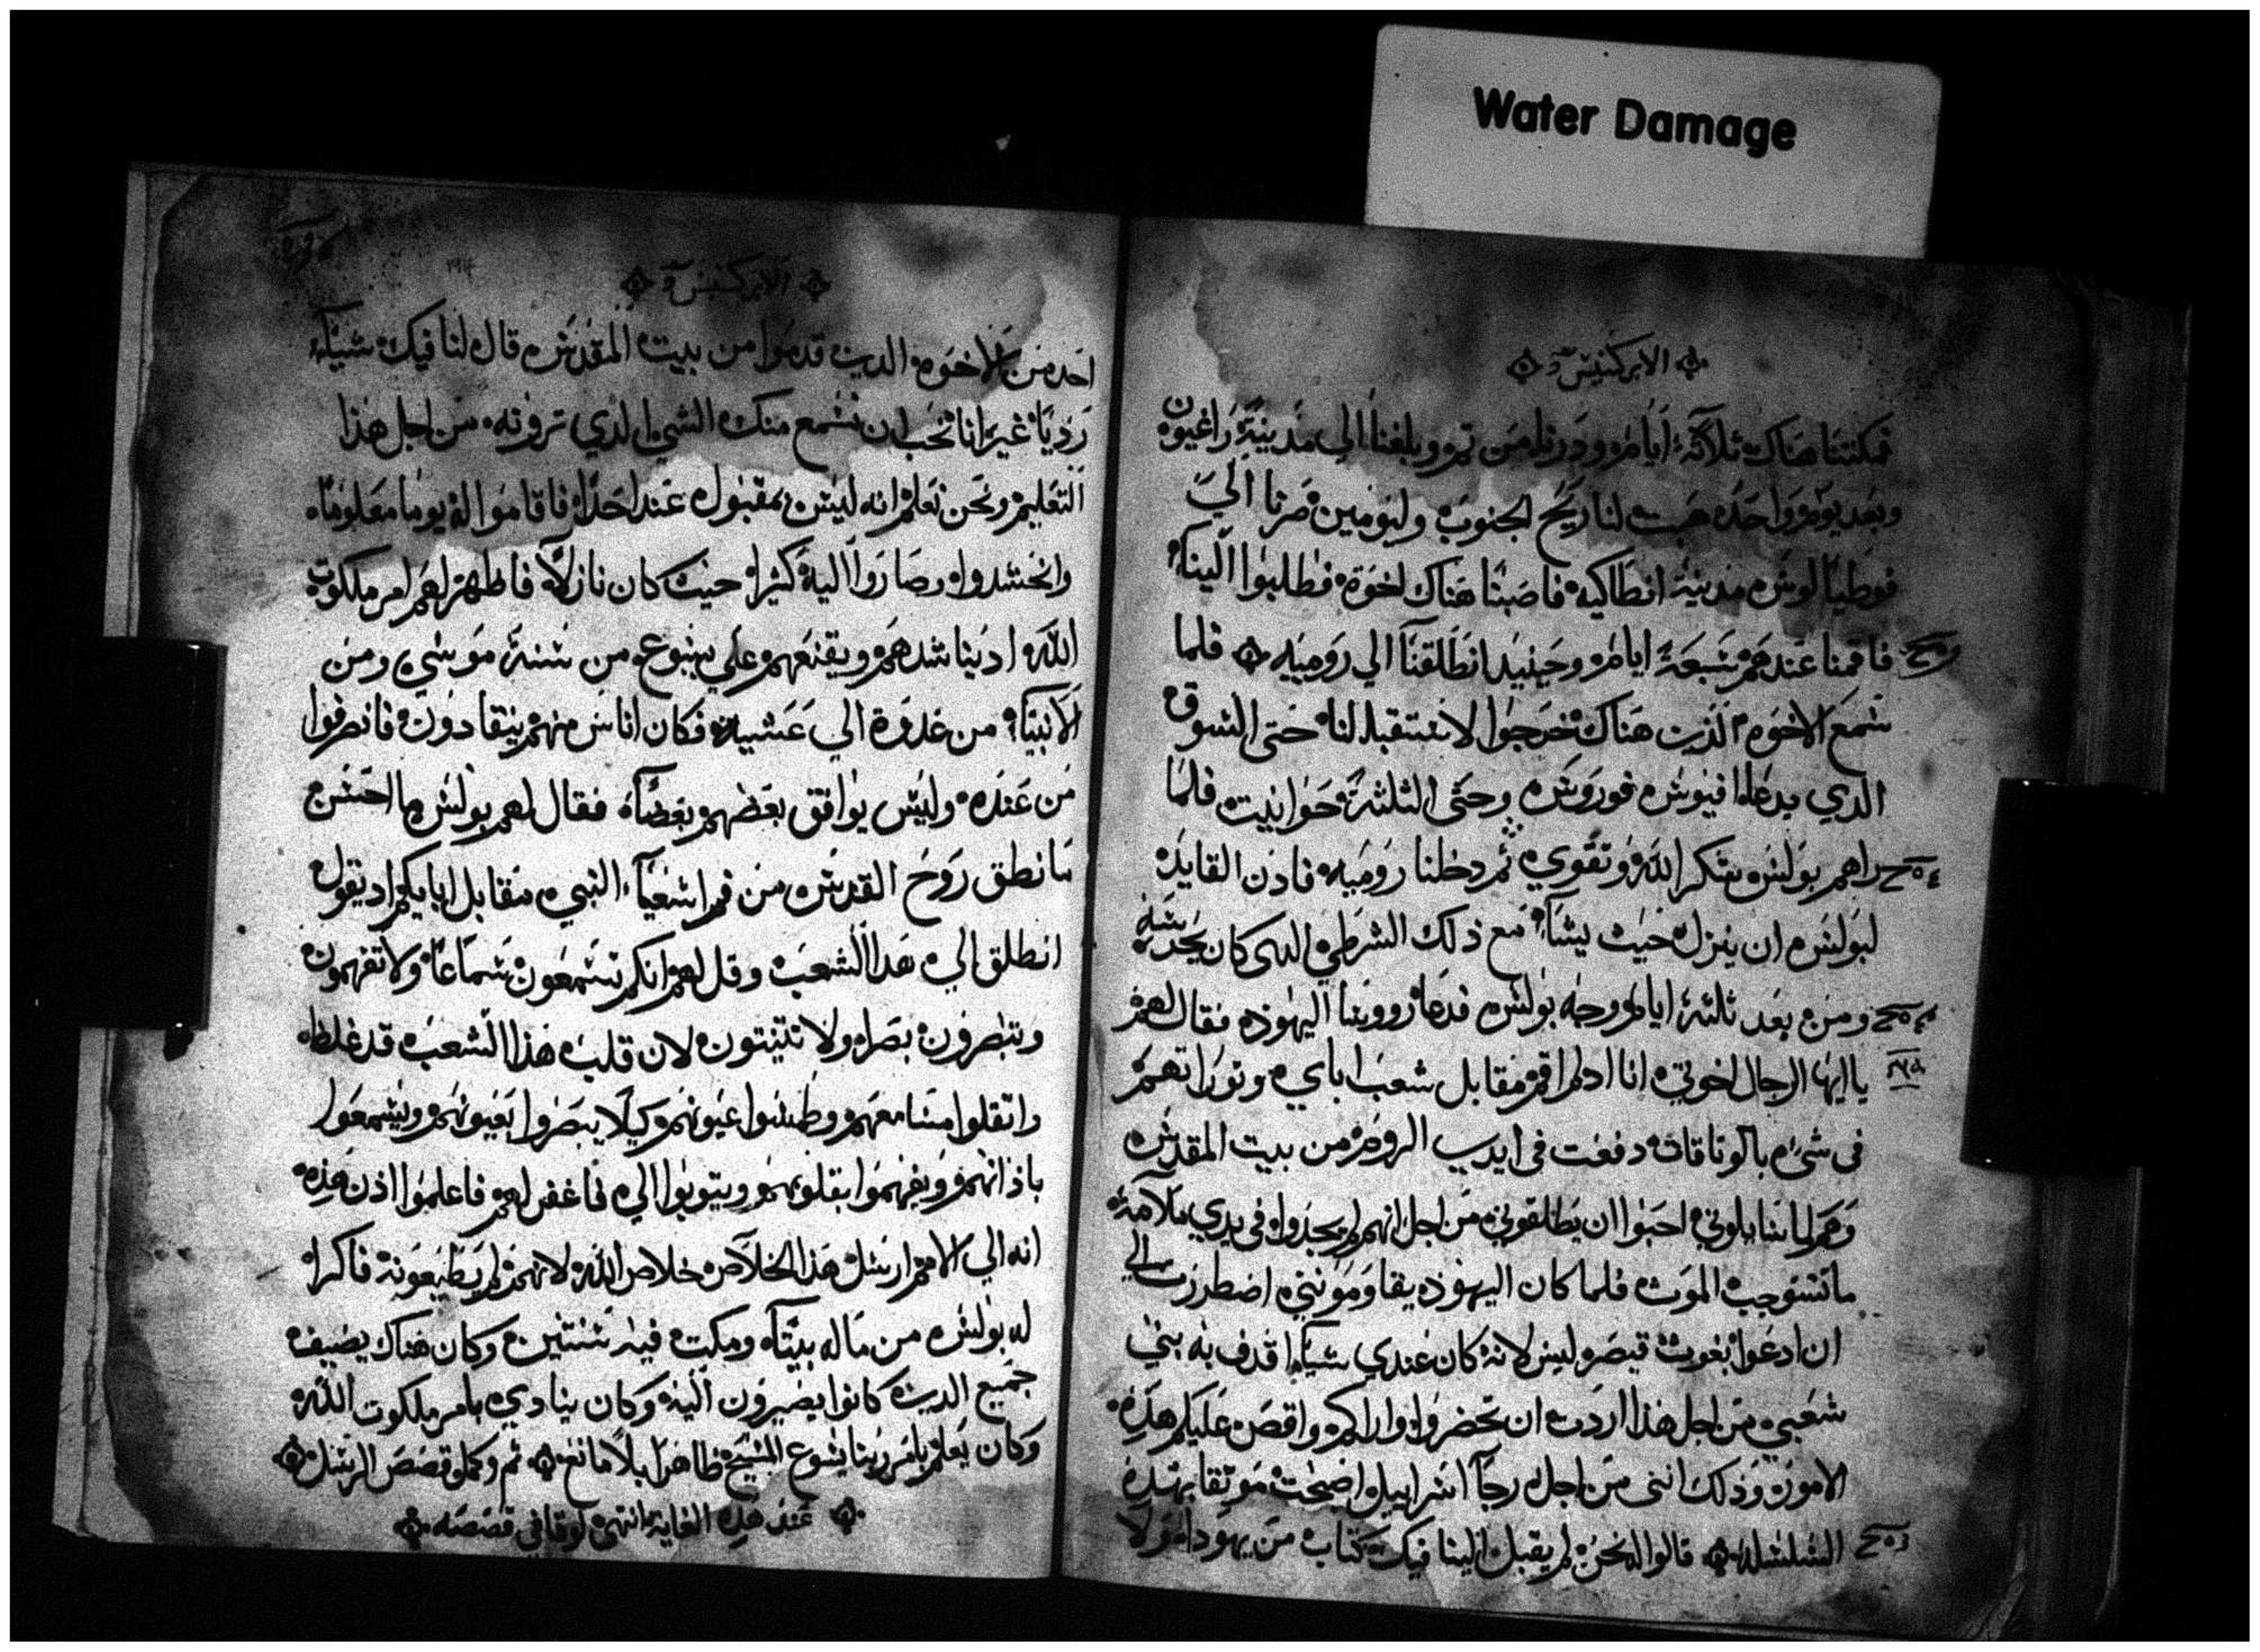 Water Damage
الابركسيس
فمكتنا هناك ثلاثة ايام ودرنا من تم وبلغنا الي مدينة راغيون
وبعد يوم واحد هبت لنا ريح الجنوب وليومين صرنا الي
فوطيالوس مدينة انطاكيه فاصبنا هناك اخوة فطلبوا الينا
فاقمنا عندهم سبعة ايام وحينيد انطلقنا الي روميه فلما
سمع الاخوه الذين هناك خرجوا لاستقبالنا حتى السوق
الدي يدعا افيوس فوروس وحتى الثلثة حوانيت فلما
راهم بولس شكر الله وتقوي ثم دخلنا روميه فادن القايد
لبولس ان ينزل حيث يشآء مع ذلك الشرطي الدى كان يحرسه
ومن بعد ثلثة ايام وجه بولس فدعا رووسا اليهود فقال لهم
يا ايها الرجال اخوتي انا اد لم اقم مقابل شعب اباي وتوراتهم
فى شىء بالوتاقات دفعت فى ايدي الروم من بيت المقدس
وهم لما سايلوني احبوا ان يطلقوني من اجل انهم لم يجدوا فى يدي ملامة
ما تستوجب الموت فلما كان اليهود يقاوموني اضطررت الي
ان ادعوا بغوث قيصر ليس لانه كان عندي شياء اقدف به بني
شعبي من اجل هذا اردت ان تحضروا واراكم واقص عليكم هذه
الامور وذلك انني من اجل رجآ اسراييل اصبحت موثقا بهذه
السلسلة قالوا له نحن لم يقبل الينا فيك كتاب من يهودا ولا
الابركسيس
احد من الاخوه الدين قدموا من بيت المقدس قال لنا فيك شيآء
رديا غير انا نحب ان نسمع منك الشي الدي تروته من اجل هذا
التعليم ونحن نعلم انه ليس بمقبول عند احد فاقاموا له يوما معلوما
وانحشدوا وصاروا اليه كثيرا حيث كان نازلا فاظهر لهم امر ملكوت
الله اد يناشدهم ويقنعهم علي يسوع من سنة موسى ومن
الانبياء من غدوة الي عشيه فكان اناس منهم ينقادون فانصرفوا
من عنده وليس يوافق بعضهم بعضآ فقال لهم بولس ما احسن
ما نطق روح القدس من فم اشعيآء النبي مقابل ابايكم اد يقول
انطلق الي هدا الشعب وقل لهم انكم تسمعون سماعا ولا تفهمون
وتبصرون بصرا ولا تثبتون لان قلب هذا الشعب قد غلظ
واتقلوا مسامعهم وطمسوا عيونهم وكيلا يبصروا بعيونهم ويسمعوا
باذانهم ويفهموا بقلوبهم ويتوبوا الي فاغفر لهم فاعلموا اذن هذه
انه الي الامم ارسل هذا الخلاص خلاص الله لانهم لم يطيعونه فاكرا
له بولس من ماله بيتآ ومكت فيه سنتين وكان هناك يضيف
جميع الدين كانوا يصيرون اليه وكان ينادي بامر ملكوت الله
وكان يعلم بامر ربنا يشوع المسيح ظاهرا بلا مانع تم وكمل قصص الرسل
عند هذه الغاية انتهى لوقا في قصصه